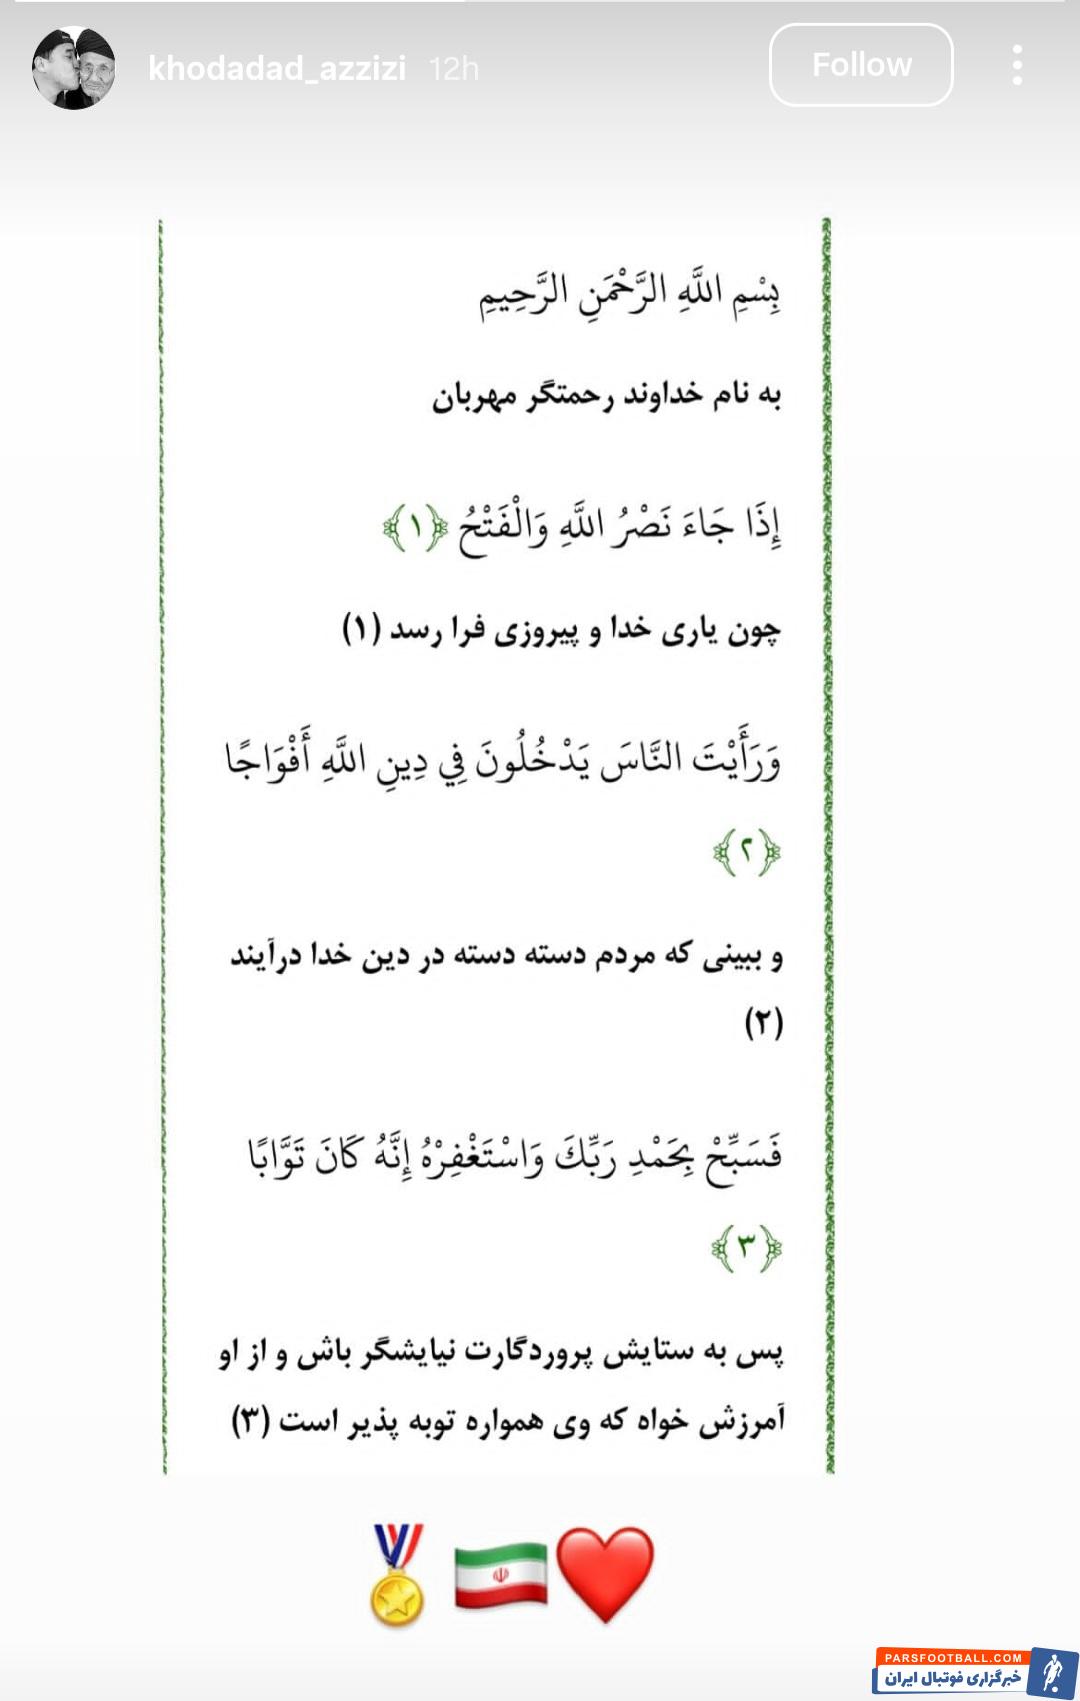 khodadad_azzizi 12h
Follow
بِسْمِ اللَّهِ الرَّحْمَنِ الرَّحِيمِ
به نام خداوند رحمتگر مهربان
إِذَا جَاءَ نَصْرُ اللَّهِ وَالْفَتْحُ ﴿۱﴾
چون یاری خدا و پیروزی فرا رسد (۱)
وَرَأَيْتَ النَّاسَ يَدْخُلُونَ فِي دِينِ اللَّهِ أَفْوَاجًا
﴿۲﴾
و ببینی که مردم دسته دسته در دین خدا درآیند
(۲)
فَسَبِّحْ بِحَمْدِ رَبِّكَ وَاسْتَغْفِرْهُ إِنَّهُ كَانَ تَوَّابًا
﴿۳﴾
پس به ستایش پروردگارت نیایشگر باش و از او
آمرزش خواه که وی همواره توبه پذیر است (۳)
PARSFOOTBALL.COM
خبرگزاری فوتبال ایران